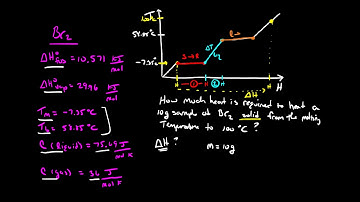 Br₂
ΔH°fus = 10.571 kJ/mol
ΔH°vap = 29.96 kJ/mol
Tm = -7.25°C
Tb = 58.85°C
C (liquid) = 75.69 J/mol K
C (gas) = 36 J/mol K
T
100°C
58.85°C
-7.25°C
S→L
ΔT
L
①
②
H
How much heat is required to heat a
10g sample of Br₂ solid from the melting
Temperature to 100°C?
ΔH?
m=10g